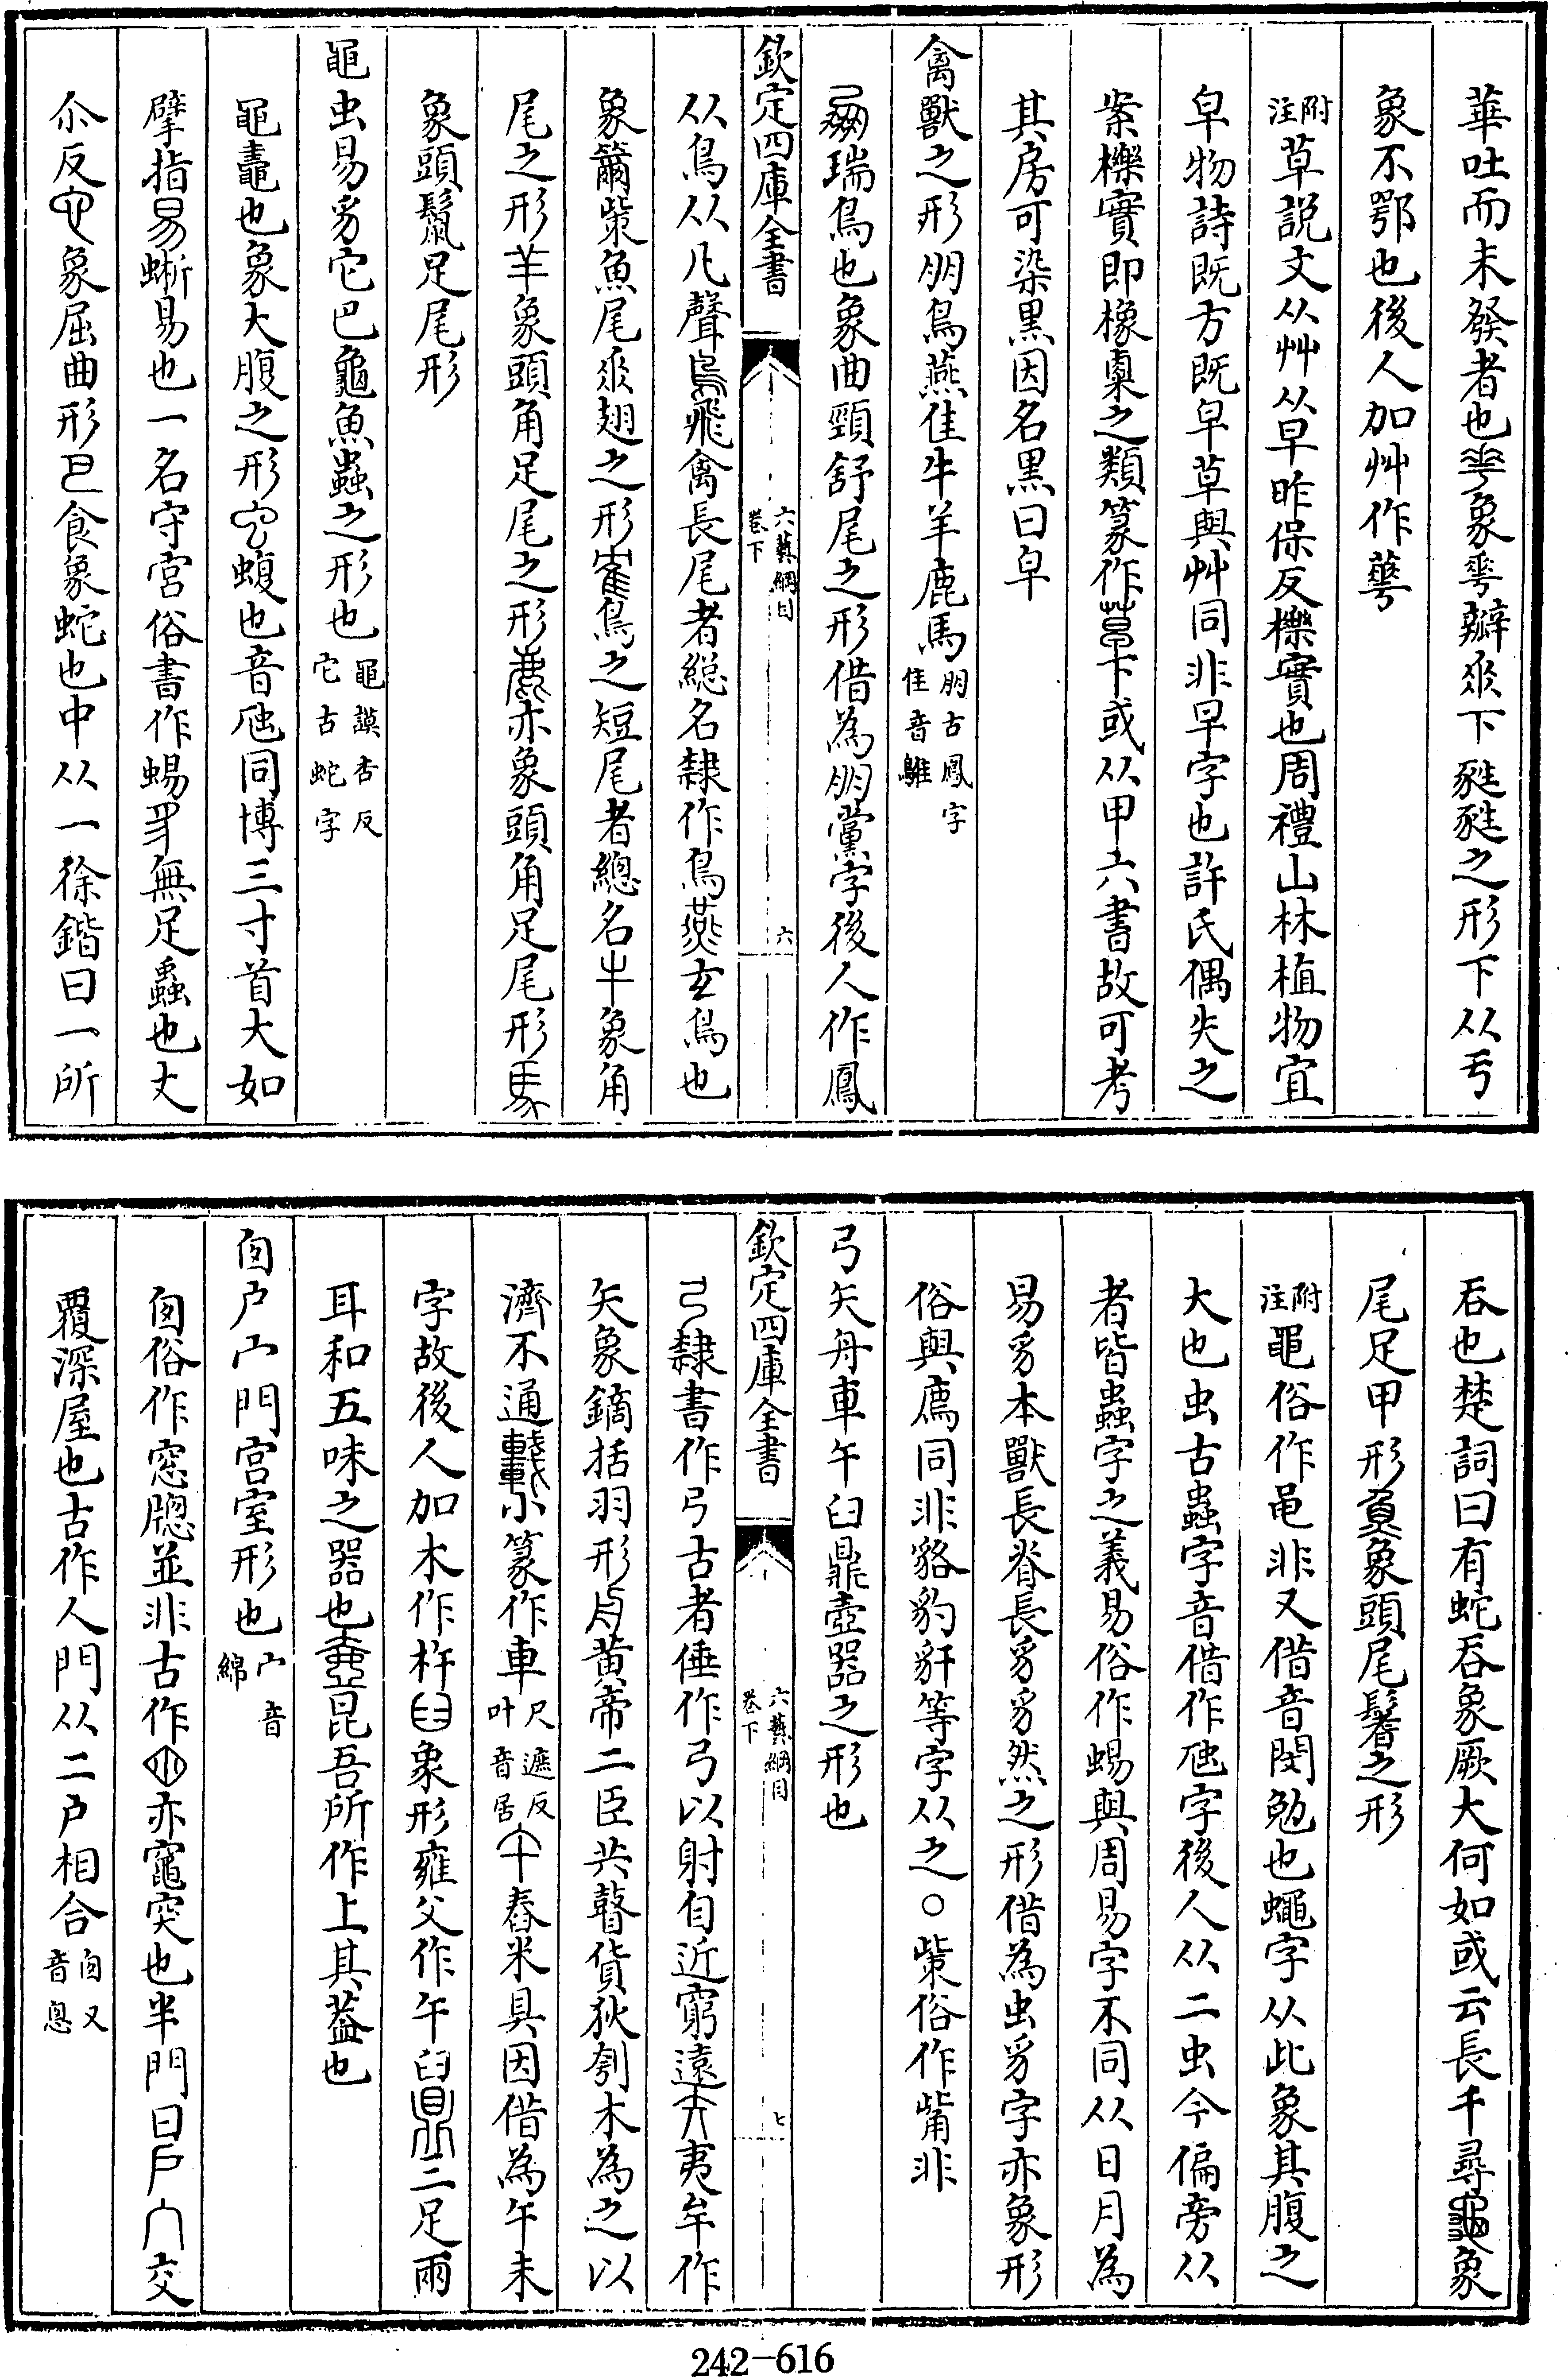 華吐而未發者也𠌶象𠌶瓣𠂹下㽔㽔之形下从亏
象不鄂也後人加艸作蕚
附注草説文从艸从早昨保反櫟實也周禮山林植物宜
皁物詩既方既皁草與艸同非早字也許氏偶失之
案櫟實即橡𣗥之類篆作下或从甲六書故可考
其房可染黒因名黒曰皁
禽獸之形朋鳥燕隹牛羊鹿馬朋古鳳字隹音鵻
瑞鳥也象曲頸舒尾之形借為朋黨字後人作鳳
欽定四庫全書
六藝綱目
卷下
六
从鳥从凡聲鳥飛禽長尾者總名隸作鳥燕玄鳥也
象籋策魚尾𠂹翅之形隹鳥之短尾者總名牛象角
尾之形羊象頭角足尾之形鹿亦象頭角足尾形馬
象頭鬛足尾形
黽虫易豸它巴龜魚蟲之形也黽謨杏反它古蛇字
黽鼃也象大腹之形虫蝮也音虺同博三寸首大如
擘指易蜥易也一名守宮俗書作蜴豸無足蟲也丈
尒反它象屈曲形巴食象蛇也中从一徐鍇曰一所
吞也楚詞曰有蛇吞象厥大何如或云長千尋龜象
尾足甲形魚象頭尾鬐之形
附注黽俗作黾非又借音閔勉也蠅字从此象其腹之
大也虫古蟲字音借作虺字後人从二虫今偏旁从
者皆蟲字之義易俗作蜴與周易字不同从日月為
易豸本獸長脊長豸豸然之形借為虫豸字亦象形
俗與廌同非貉豹豻等字从之○策俗作觜非
弓矢舟車午臼鼎壺器之形也
欽定四庫全書
六藝綱目
卷下
七
弓隸書作弓古者倕作弓以射自近窮遠矢夷牟作
矢象鏑括羽形舟黄帝二臣共鼓貨狄刳木為之以
濟不通車小篆作車尺遮反叶音居午舂米具因借為午未
字故後人加木作杵臼象形雍父作午臼鼎三足兩
耳和五味之器也壺昆吾所作上其葢也
囪户宀門宮室形也宀音綿
囪俗作窓牎並非古作亦竈突也半門曰户宀交
覆深屋也古作人門从二户相合囪又音悤
242-616